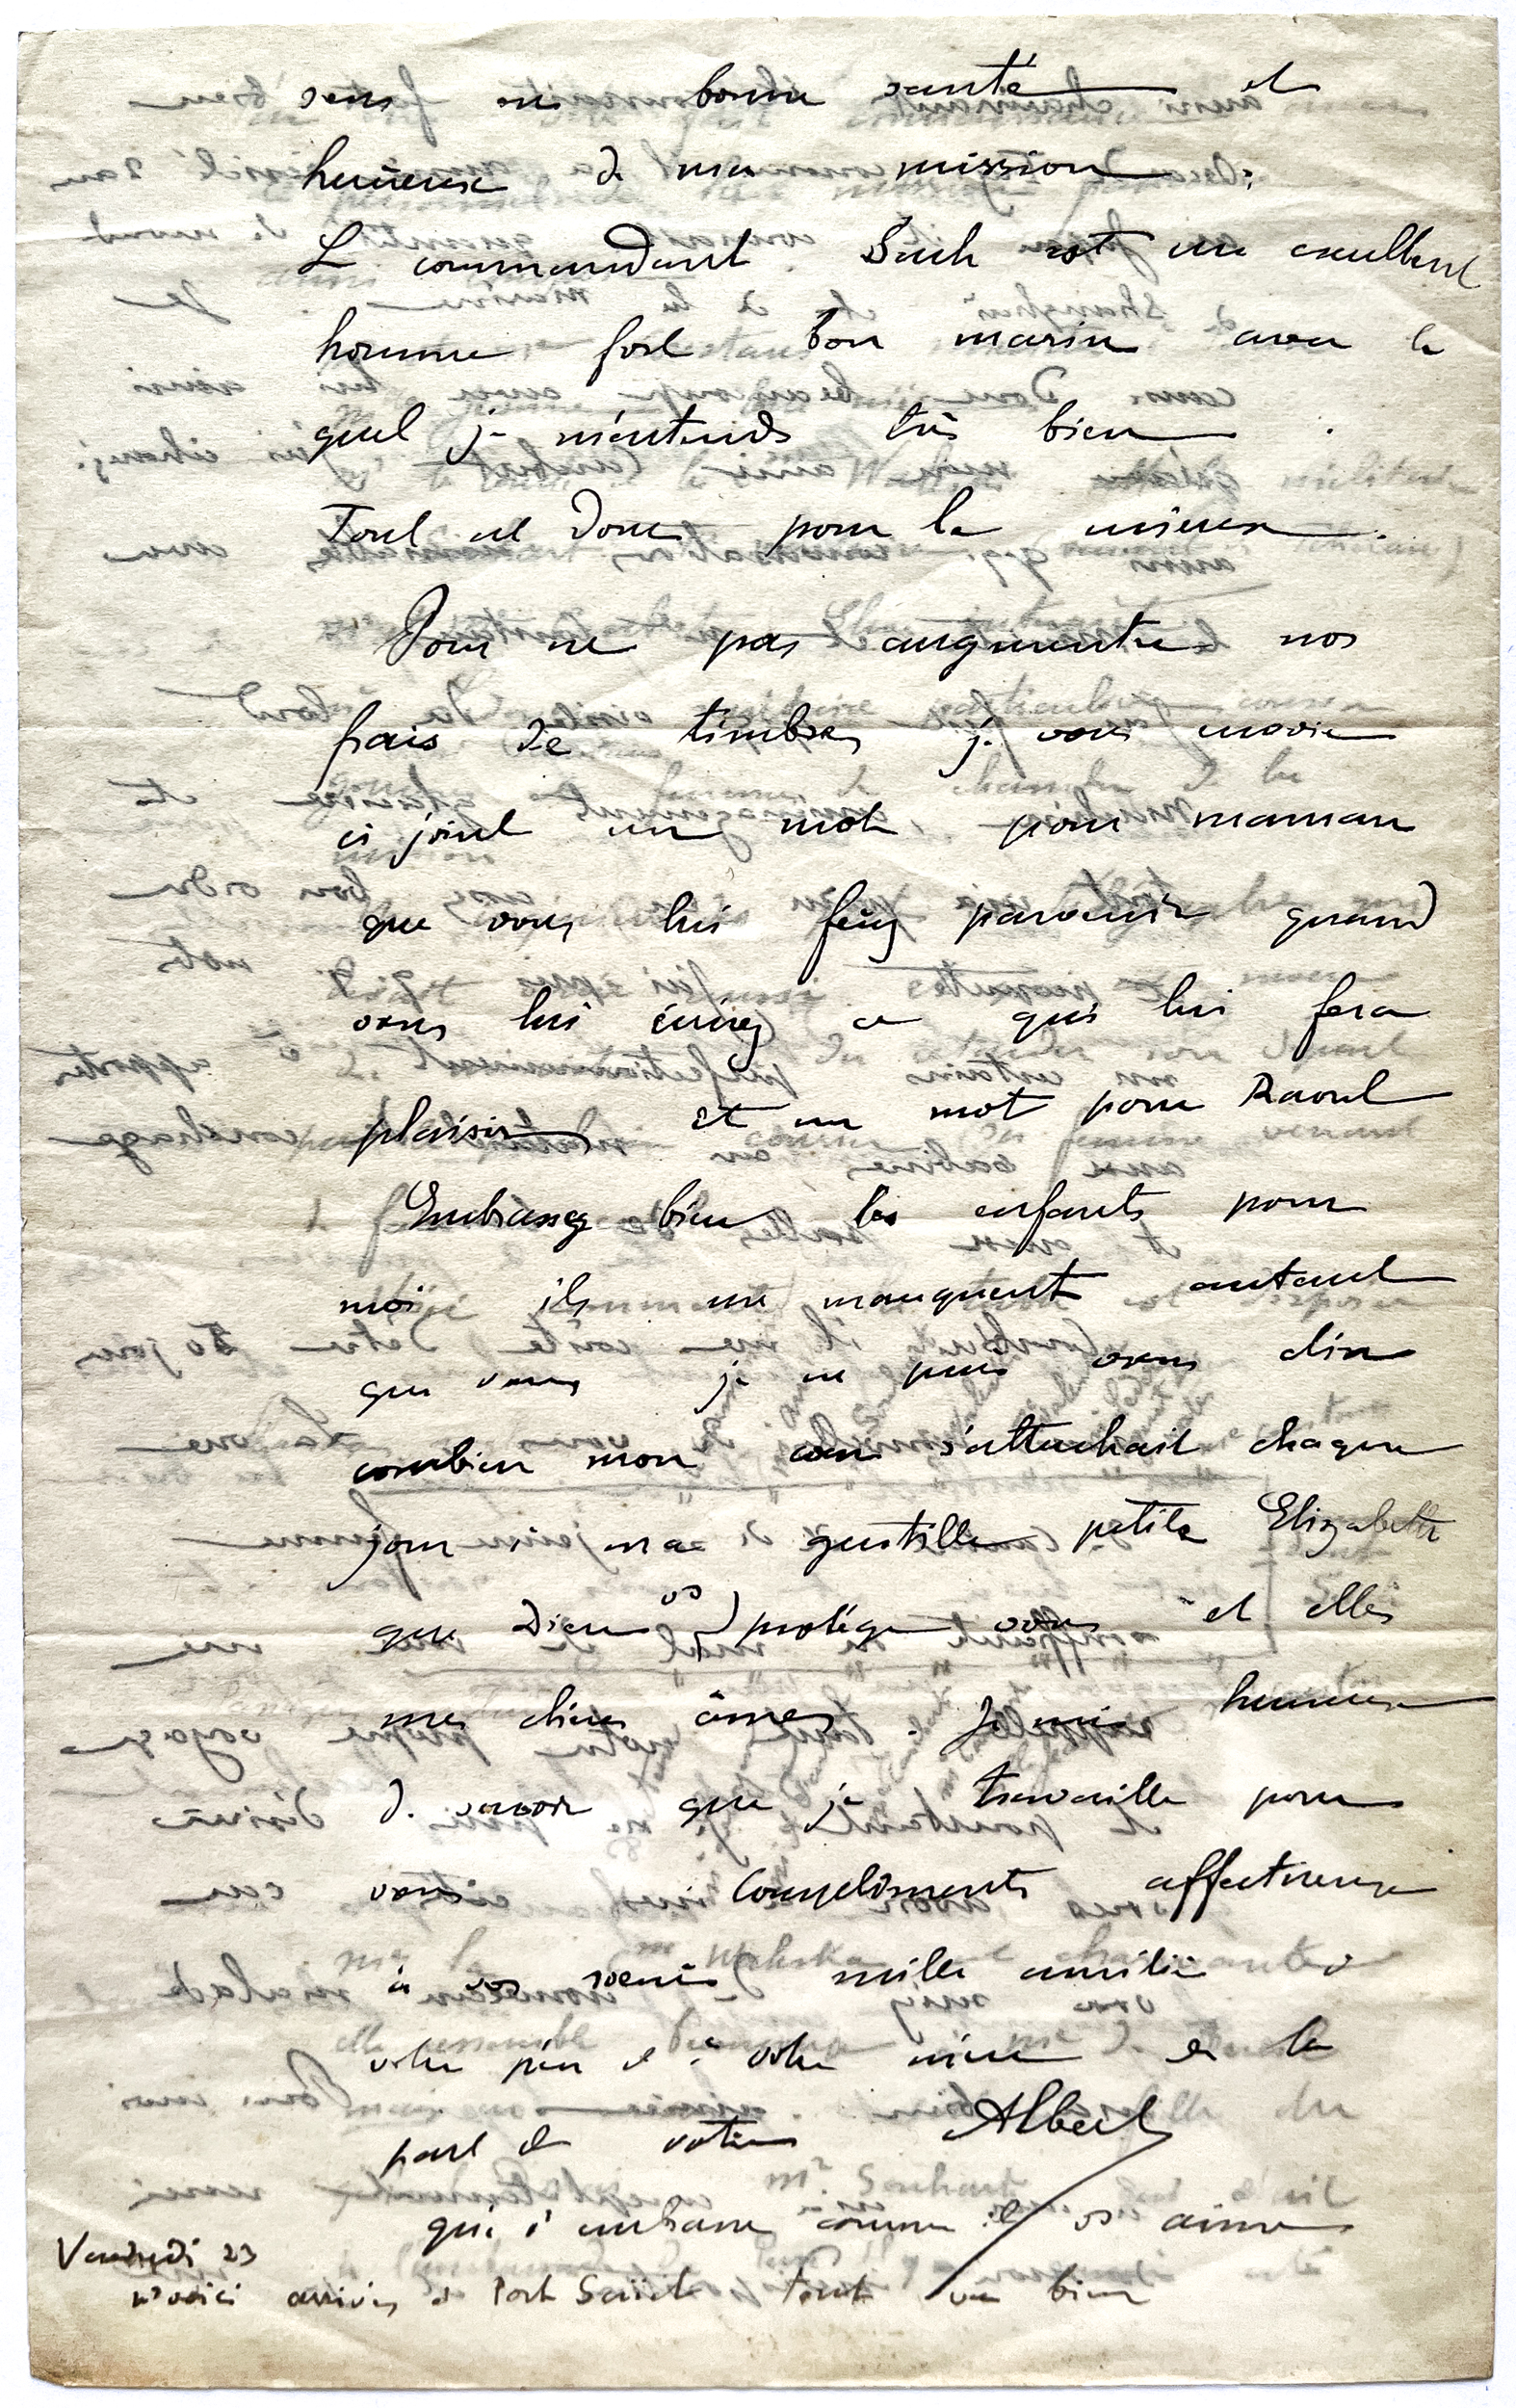 sens en bonne santé et
heureux de ma mission.
Le commandant est un excellent
homme fort bon marin avec le
quel je m'entends très bien.
Tout est donc pour le mieux.
Pour ne pas augmenter nos
frais de timbres je vous envoie
ci joint un mot pour maman
que vous lui ferez parvenir quand
vous lui écrirez ce qui lui fera
plaisir, et un mot pour Raoul
Embrassez bien les enfants pour
moi ils me manquent autant
que vous je ne puis vous dire
combien mon cœur s'attachait chaque
jour à ma gentille petite Elizabeth
que Dieu vs protège vous et elles
mes chères âmes. Je suis heureux
de savoir que je travaille pour
vous. Compliments affectueux
à vos sœurs mille amitiés à
votre père et à votre mère de la
part de votre Albert
qui vs embrasse comme il vs aime
Vendredi 23
ns voici arrivés à Port Saïd tout va bien